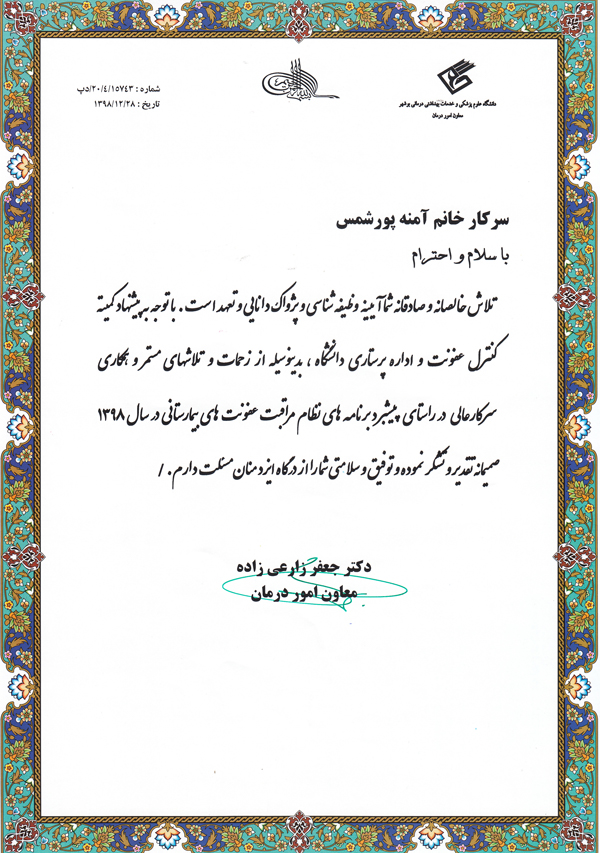 دانشگاه علوم پزشکی و خدمات بهداشتی درمانی بوشهر
معاون امور درمان
شماره : ۲۰/۴/۱۵۷۴۳/دپ
تاریخ : ۱۳۹۸/۱۲/۲۸
سرکار خانم آمنه پورشمس
با سلام و احترام
تلاش خالصانه و صادقانه شما آیینه وظیفه شناسی و پژواک دانایی و تعهد است . با توجه به پیشنهاد کمیته
کنترل عفونت و اداره پرستاری دانشگاه ، بدینوسیله از زحمات و تلاشهای مستمر و همکاری
سرکارعالی در راستای پیشبرد برنامه های نظام مراقبت عفونت های بیمارستانی در سال ۱۳۹۸
صمیمانه تقدیر و تشکر نموده و توفیق و سلامتی شما را از درگاه ایزد منان مسئلت دارم . /
دکتر جعفر زارعی زاده
معاون امور درمان